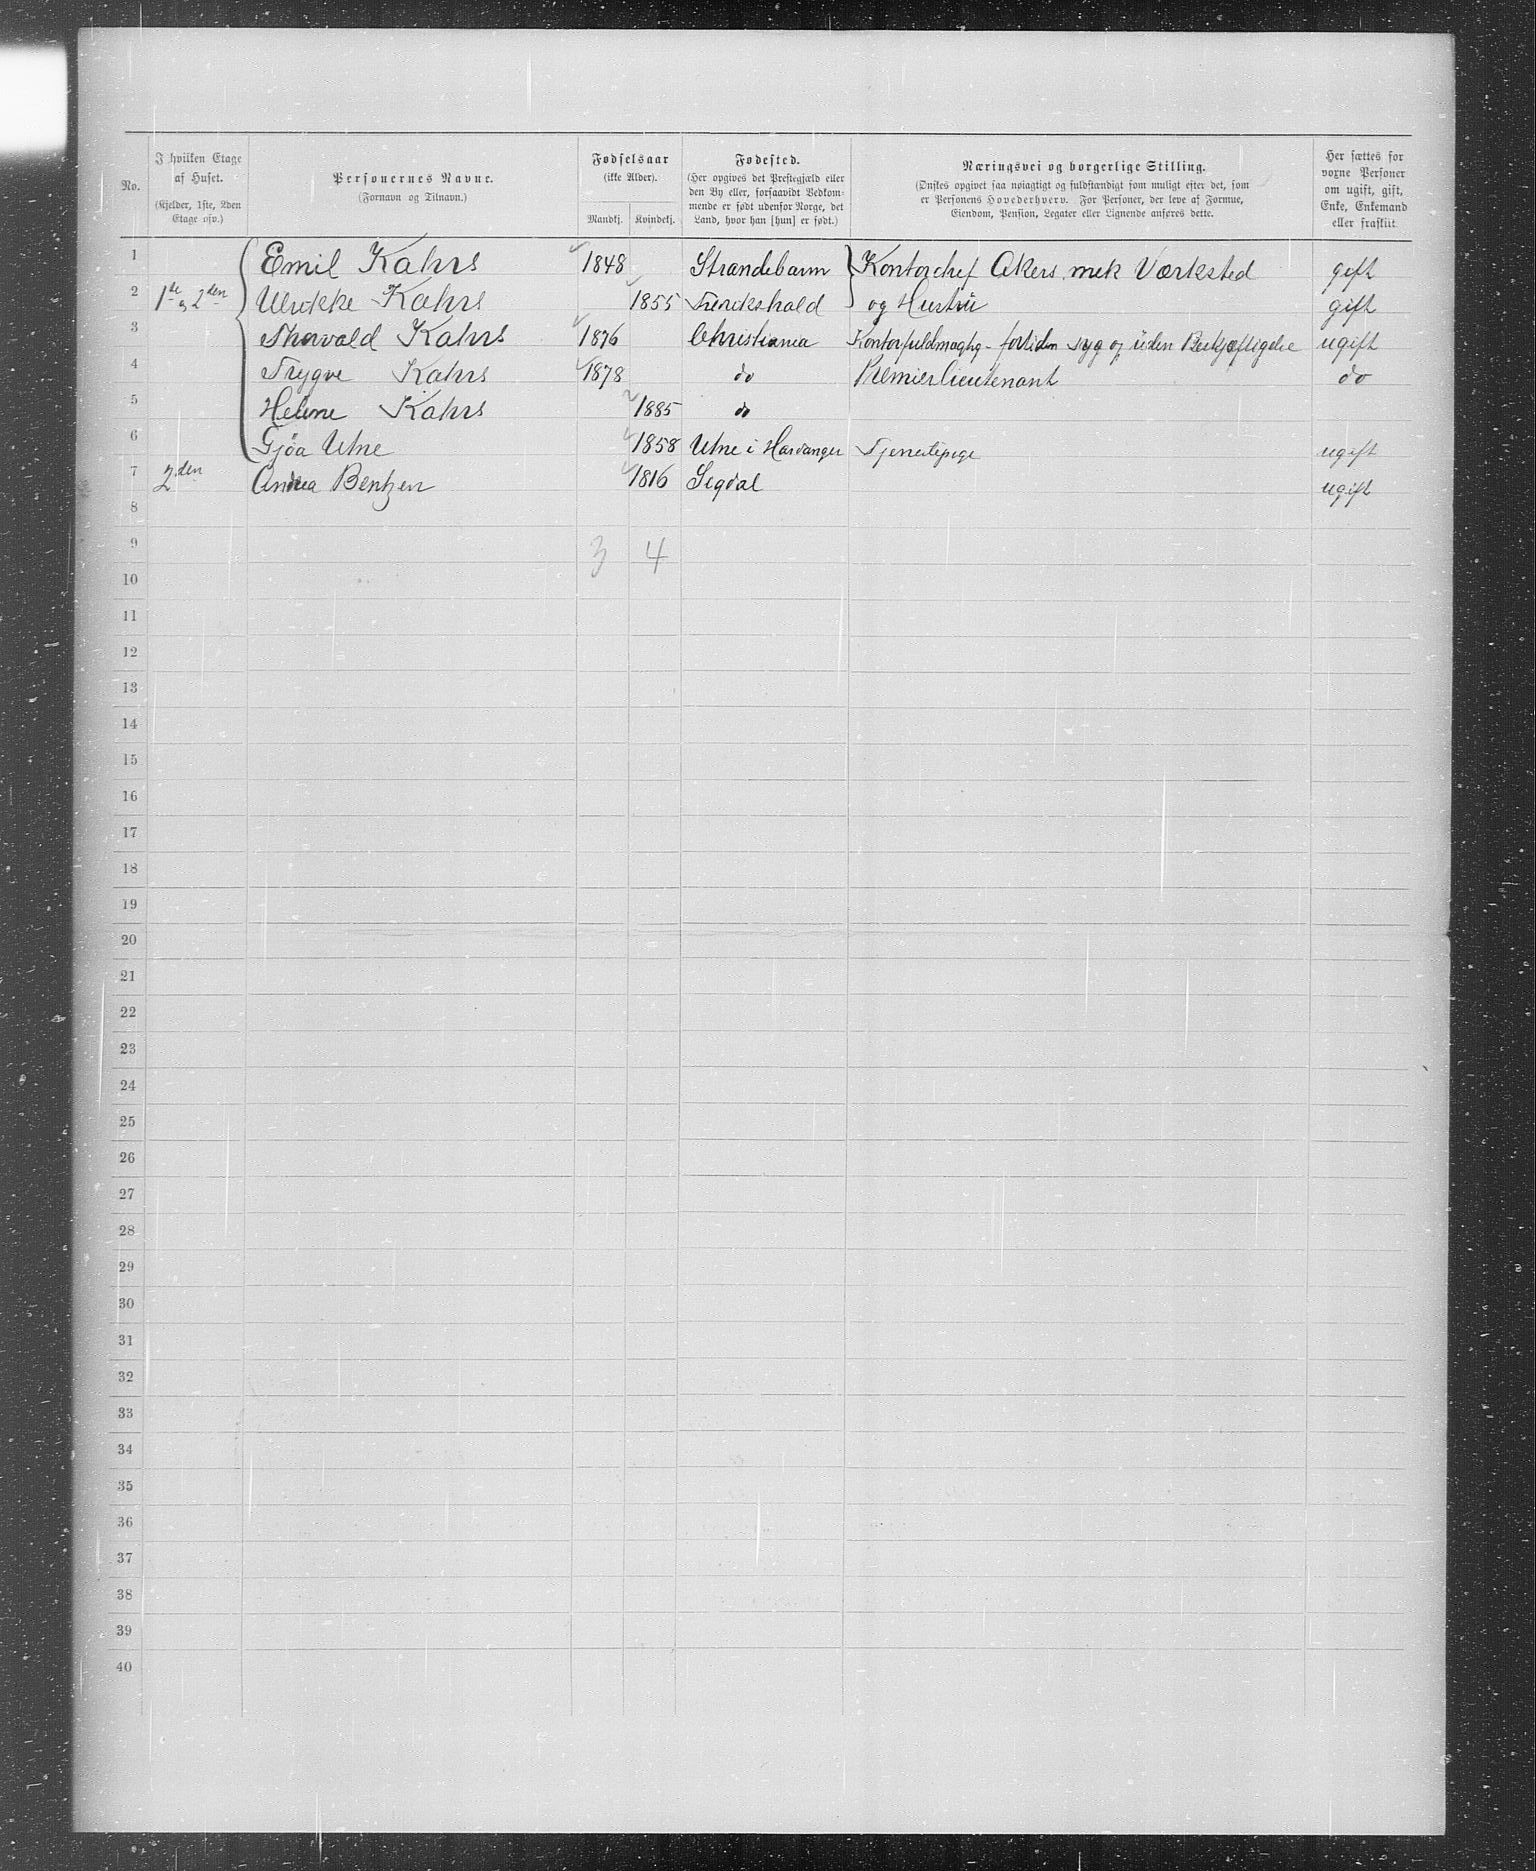 No. | I hvilken Etage af Huset. (Kjelder, 1ste, 2den Etage osv.) | Personernes Navne. (Fornavn og Tilnavn.) | Fødselsaar (ikke Alder). Mandkj. | Kvindekj. | Fødested. (Her opgives det Prestegjæld eller den By eller, forsaavidt Vedkommende er født udenfor Norge, det Land, hvor han [hun] er født.) | Næringsvei og borgerlige Stilling. (Ønskes opgivet saa nøiagtigt og fuldstændigt som muligt efter det, som er Personens Hovederhverv. For Personer, der leve af Formue, Eiendom, Pension, Legater eller Lignende anføres dette. | Her sættes for voxne Personer om ugift, gift, Enke, Enkemand eller fraskilt
1 Emil Kahrs 1848 Strandebarm Kontorchef Akers mek Værksted gift
2 1ste & 2den Ulrikke Kahrs 1855 Fredrikshald og Hustru gift
3 Thorvald Kahrs 1876 Christiania Kontorfuldmægtig - fortiden syg og uden Beskjæftigelse ugift
4 Trygve Kahrs 1878 do Premierlieutenant do
5 Helene Kahrs 1885 do
6 Gjöa Utne 1858 Utne i Hardanger Tjenestepige ugift
7 2den Andrea Bentzen 1816 Sigdal ugift
8
9 3 4
10
11
12
13
14
15
16
17
18
19
20
21
22
23
24
25
26
27
28
29
30
31
32
33
34
35
36
37
38
39
40